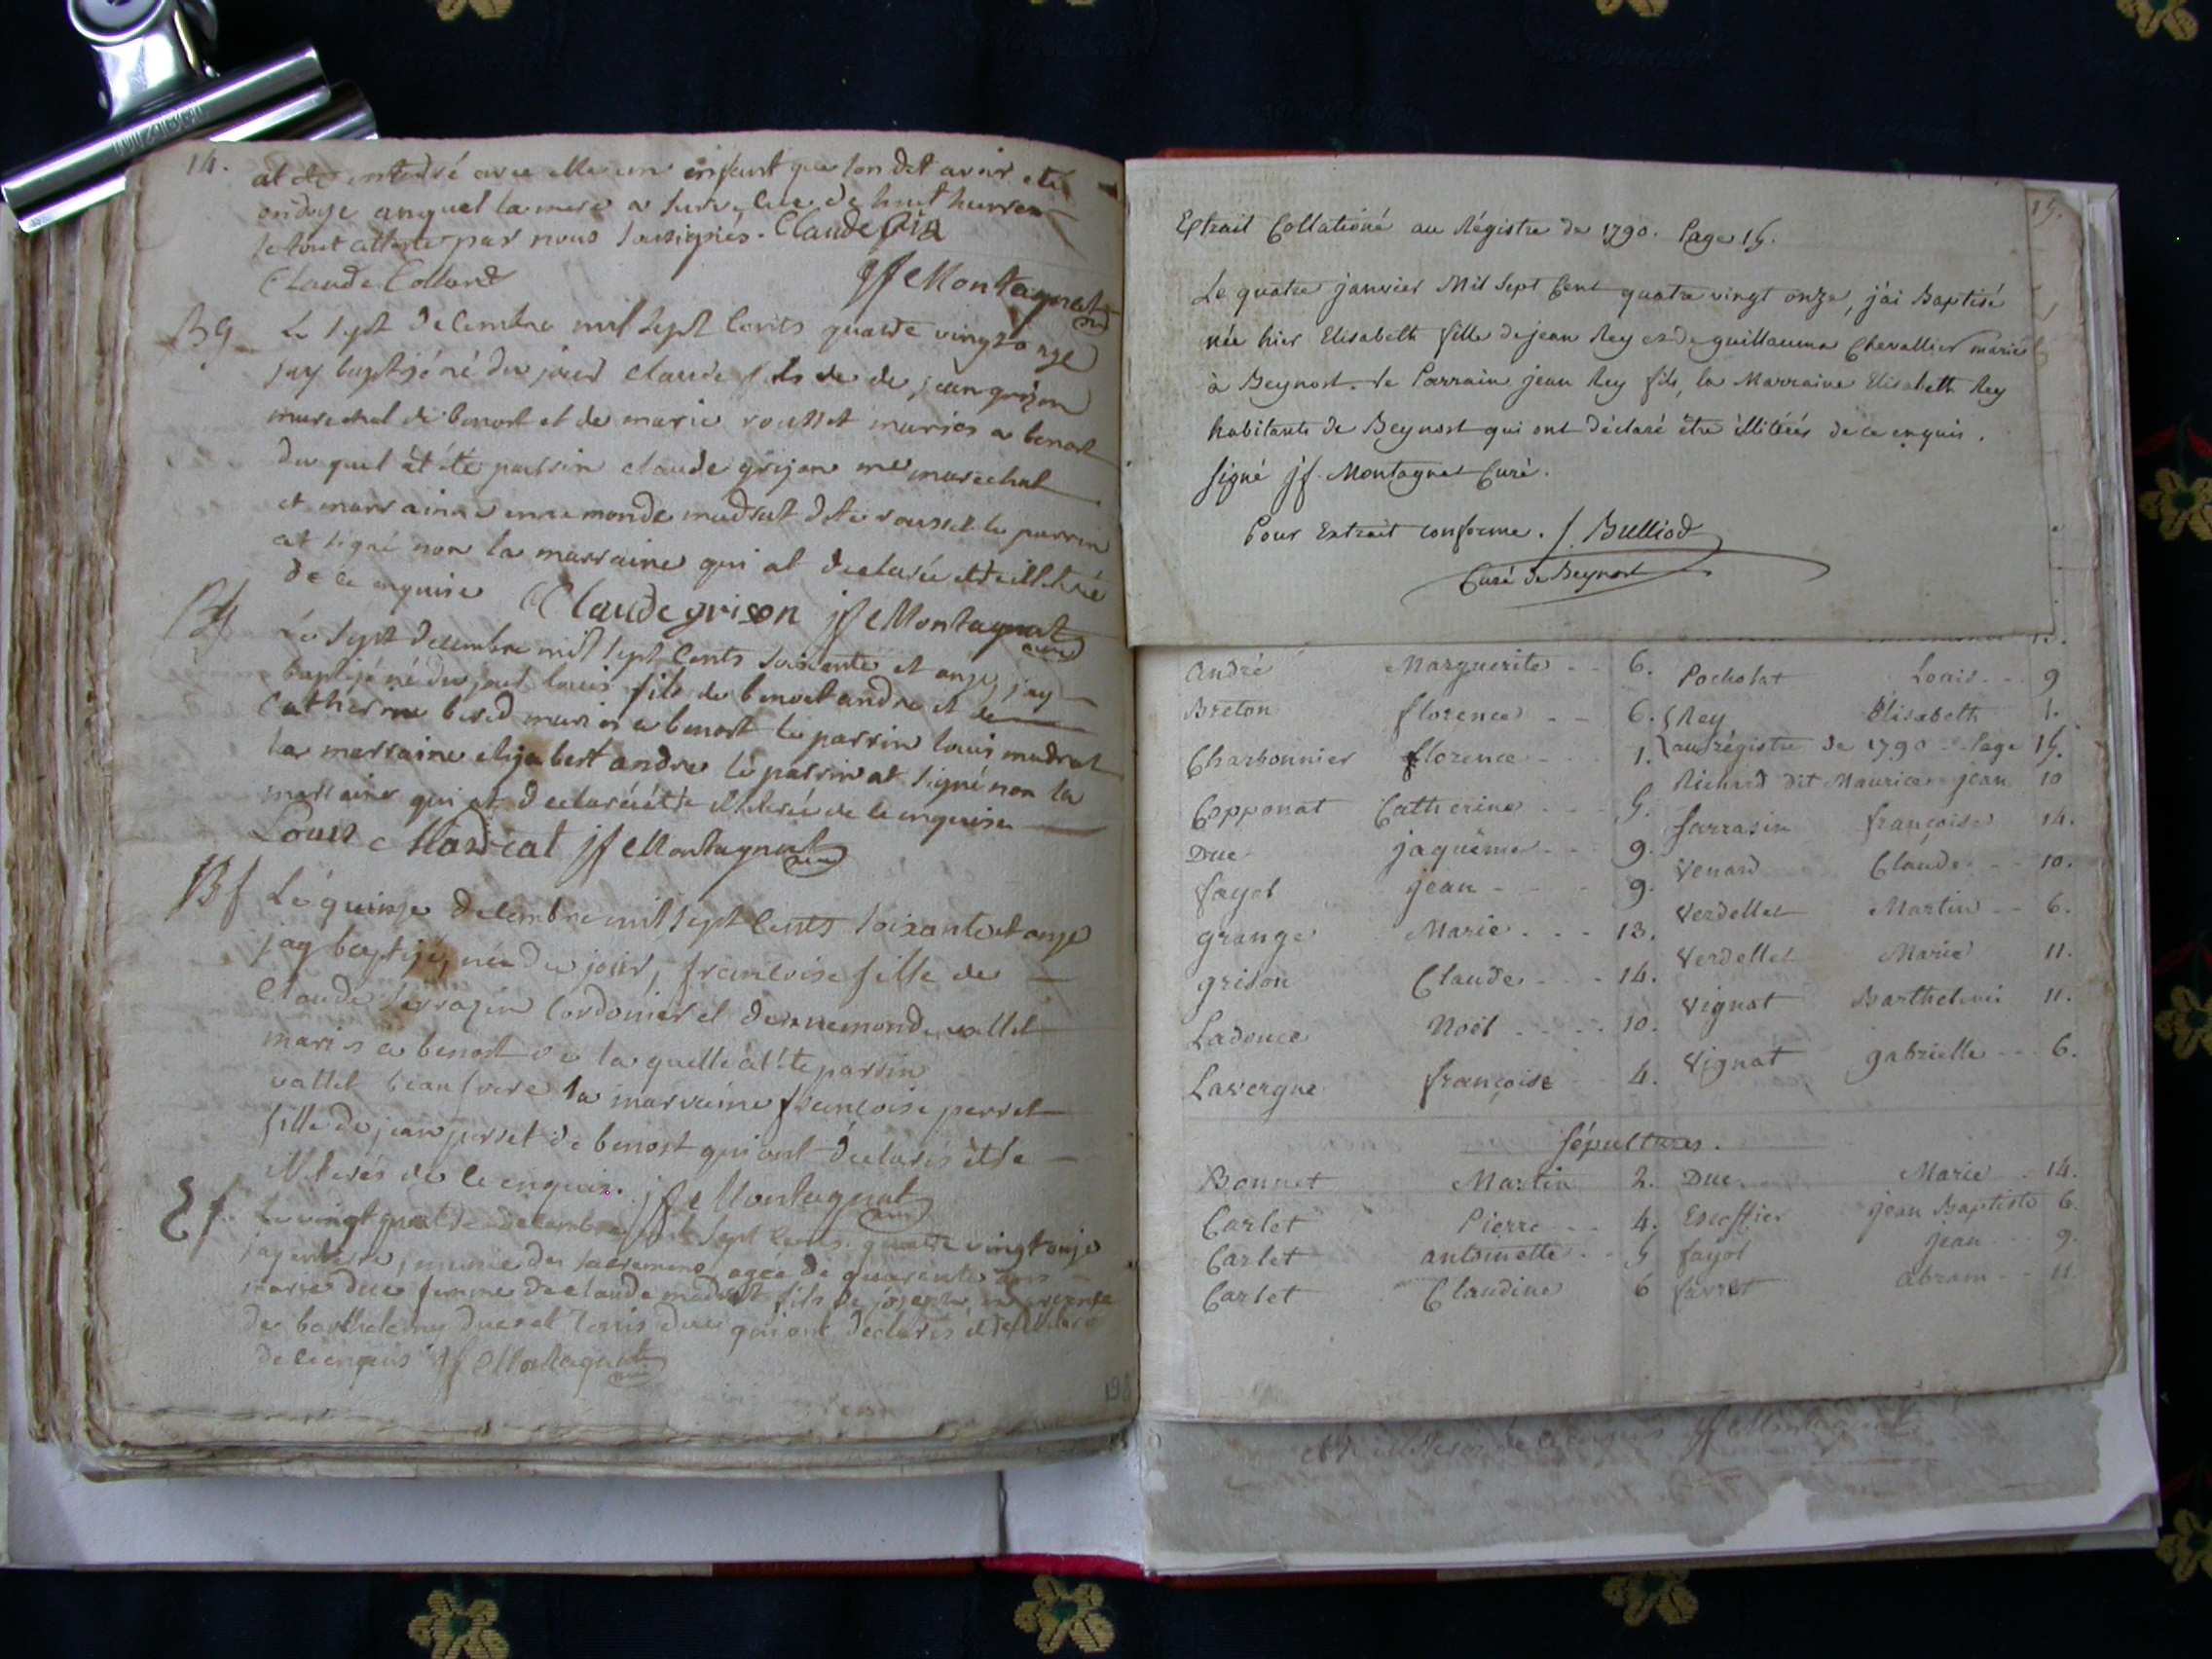 14.
at été enterré avec elle un enfant que lon dit avoir eté
ondoyé auquel la mere a survecue de huit heures
le tout atteste par nous soussignés. Claude
Claude Colland
jf Montagnat curé
Bg
Le sept decembre mil sept cents quatre vingt onze
jay baptizé né du jour Claude fils de de jean grizon
marechal de benost et de marie rousset mariés a benost
du quel at été parrin claude grizon me marechal
et marraine ennemonde madrat dete rousset le parrin
at signé non la marraine qui at declarée etre illiterée
de ce enquise Claude grison jf Montagnat curé
Bg
Le sept decembre mil sept cents soixante et onze, jay
baptizé né du jour louis fils de benoit andre et de
Catherine mariés a benost le parrin louis madrat
la marraine elizabert andre le parrin at signé non la
marraine qui at declaréé étre illiterée de ce enquise
Louis Madreat jf Montagnat curé
Bf
Le quinze decembre mil sept cents soixante et onze
jay baptizé, née du jour, francoise fille de
Claude sarrazin Cordonier et dennemonde vallet
mariés a benost de la quelle at été parrin
vallet beaufrere la marraine francoise perret
fille de jean perret de benost qui ont déclarés etre
illiterés de ce enquis. jf Montagnat curé
Ef
Le vingt quatre decembre mil sept cents quatre vingt onze
jay enterré, munie des sacremens agée de quarente ans
marie duc femme de claude madrat fils de joseph, en presence
de barthelemy duc et louis duc qui ont déclarés etre illiteré
de ce enquis jf Montagnat curé
198
Extrait Collationé au Régistre de 1790. Page 15.
Le quatre janvier Mil Sept Cent quatre vingt onze, j'ai Baptisé
née hier Elisabeth fille de jean Rey et de guillauma Chevallier mariés
à Beynost. le Parrain jean Rey fils, la Marraine Elisabeth Rey
habitants de Beynost qui ont déclaré être illitérés de ce enquis.
signé jf. Montagnat Curé.
Pour Extrait conforme. J. Bulliod
Curé de Beynost
15.
andré Marguerite - - 6.
Breton florence - - 6.
Charbonnier florence - - 1.
Copponat Catherine - - 5.
Duc jaquême - - 9.
fayol jean - - - 9.
grange Marie . . . 13.
grison Claude - - - 14.
Ladouce Noël - - - 10.
Lavergne françoise 4.
Pocholat Louis - - 9
Rey Élisabeth 1.
au régistre de 1790 - Page 15.
Richard dit Maurice jean 10
sarrasin françoise 14.
Venard Claude - - 10.
Verdellet Martin - - 6.
Verdellet Marie 11.
Vignat Barthelemi 11.
Vignat gabrielle - - 6.
Sépultures.
Bonnet Martin 2. Duc Marie . 14.
Carlet Pierre - - 4. Escoffier jean Baptiste 6.
Carlet antoinette . . 5 fayol jean - - 9.
Carlet Claudine 6 favret abram - - 11